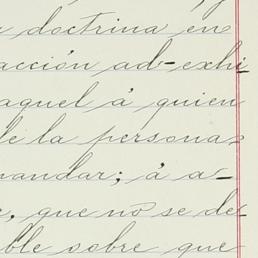 doctrina en
acción ad-exhi
aquel á quien
de la persona-
mandar; á a-
que no se de
ble sobre que